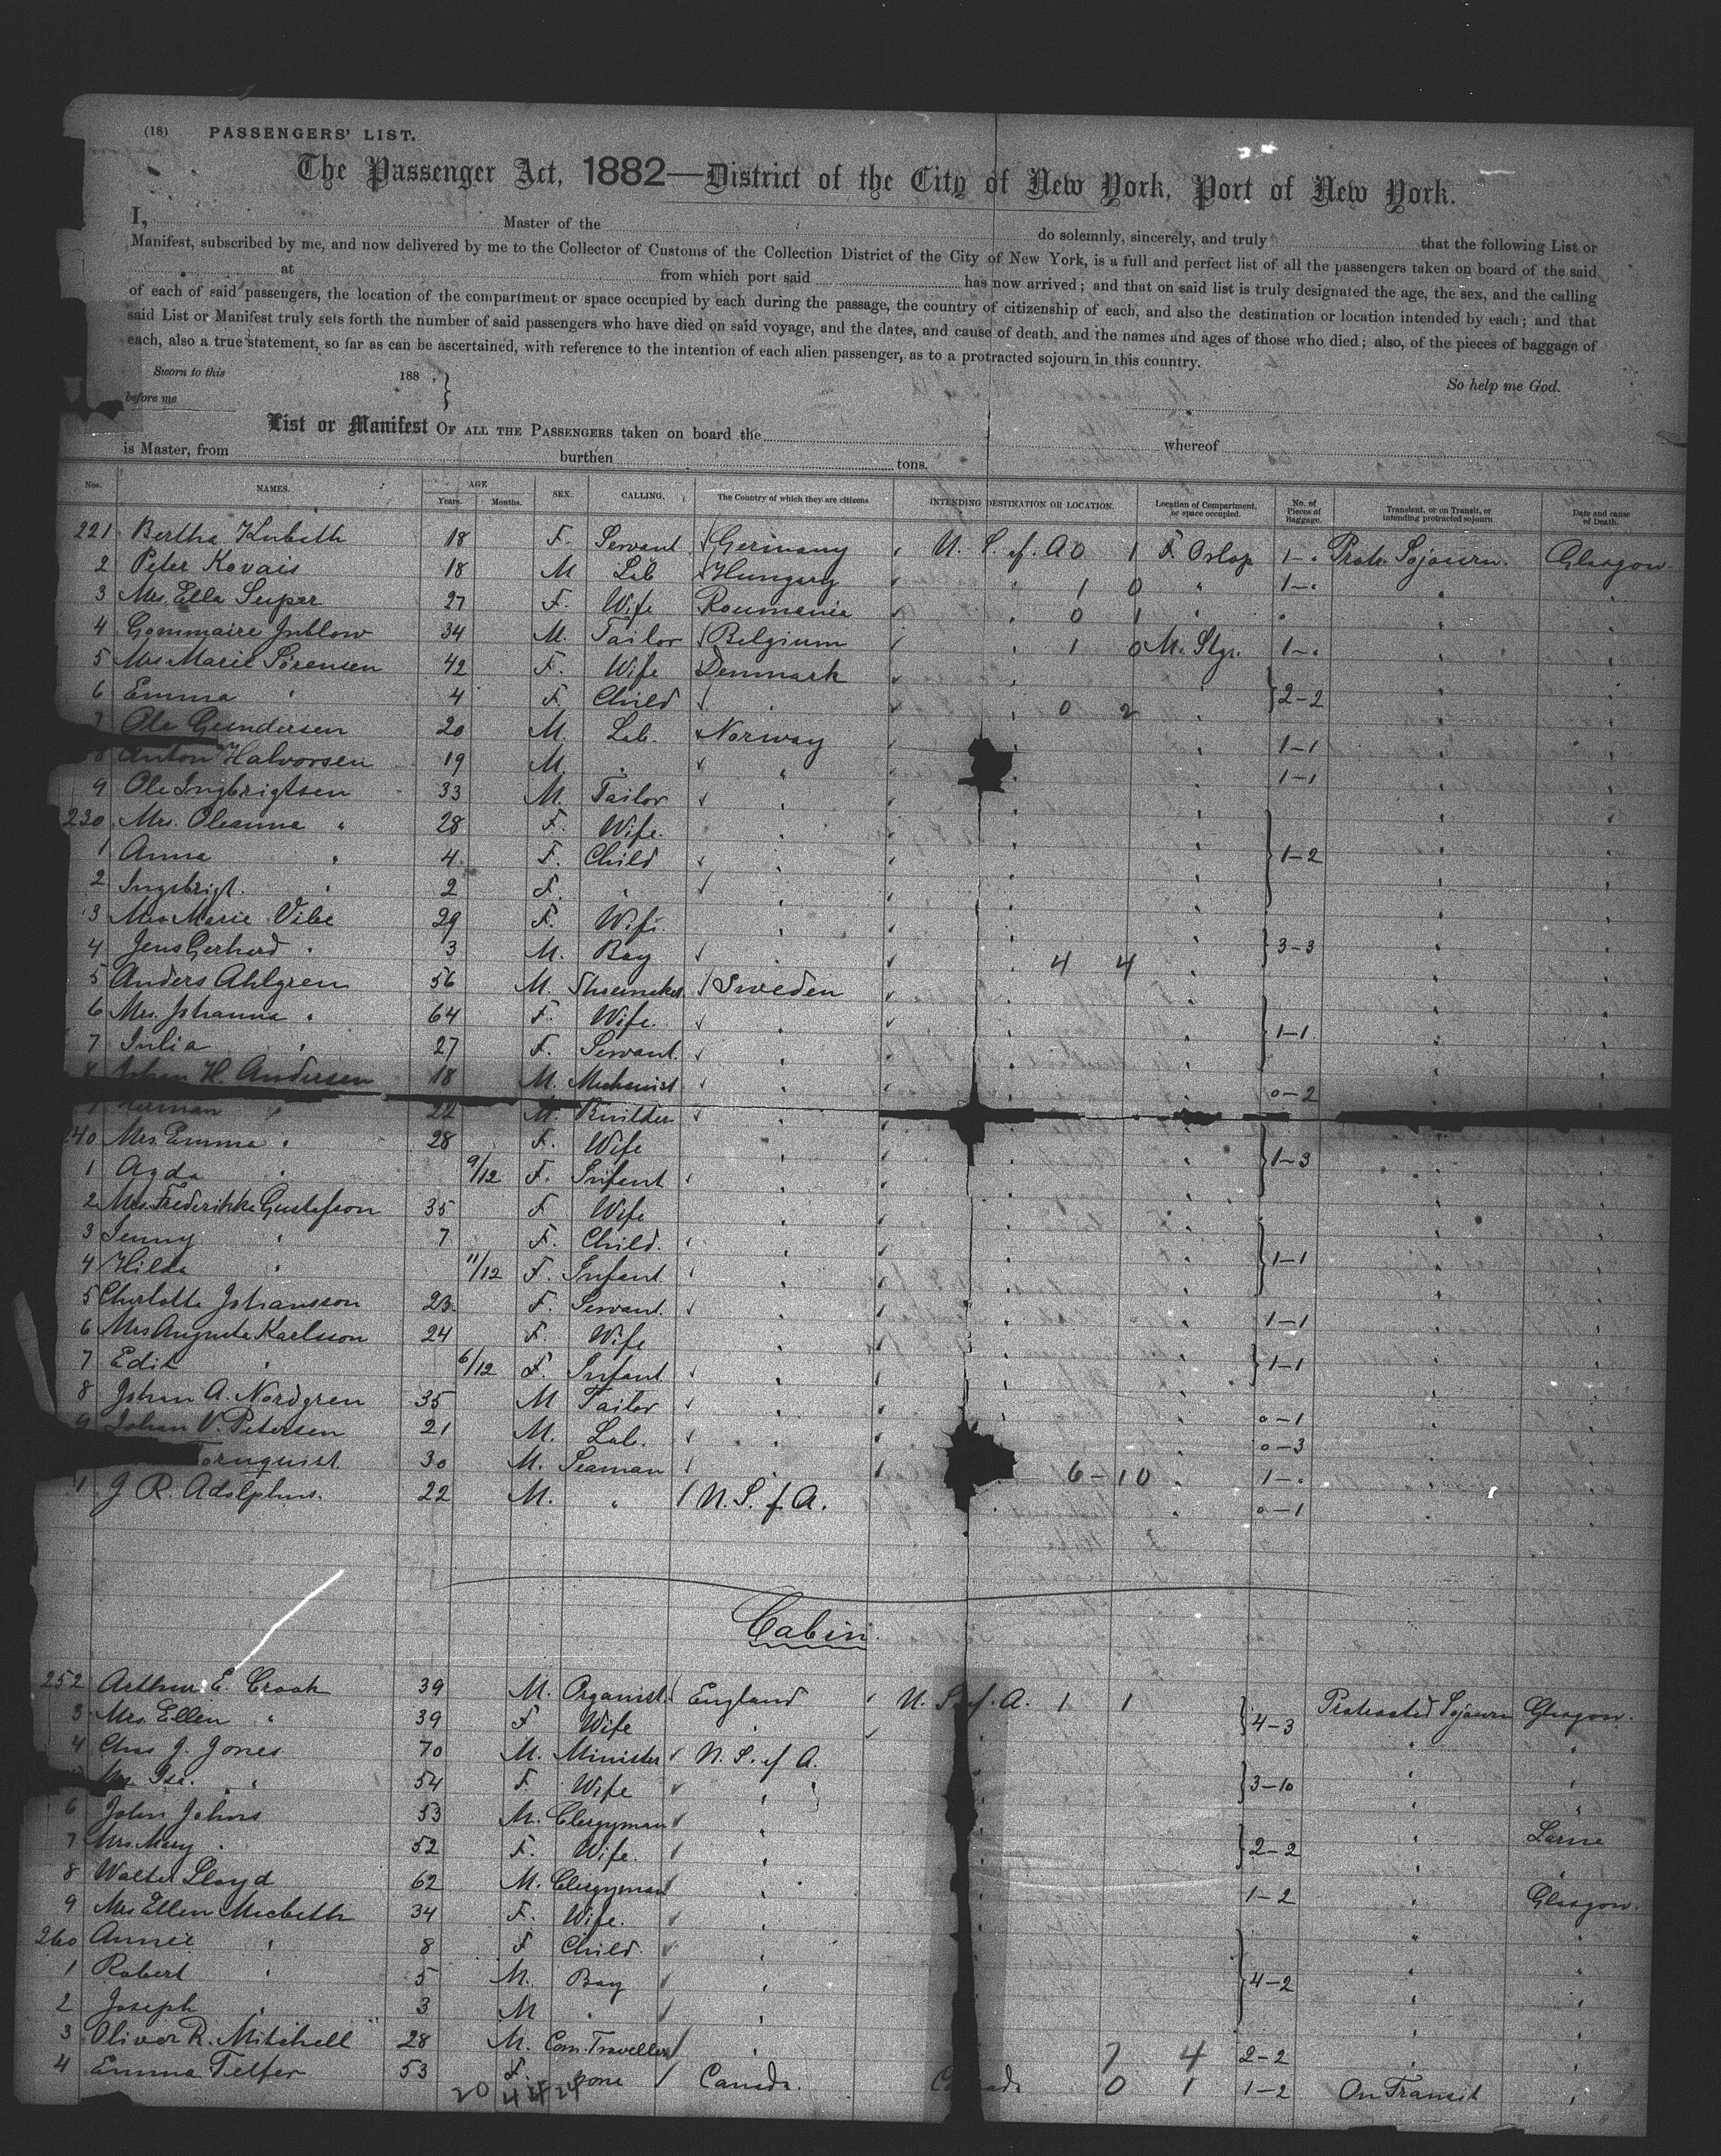 (18) PASSENGERS' LIST.
The Passenger Act, 1882—District of the City of New York, Port of New York.
I, Master of the do solemnly, sincerely, and truly that the following List or
Manifest, subscribed by me, and now delivered by me to the Collector of Customs of the Collection District of the City of New York, is a full and perfect list of all the passengers taken on board of the said
at from which port said has now arrived; and that on said list is truly designated the age, the sex, and the calling
of each of said passengers, the location of the compartment or space occupied by each during the passage, the country of citizenship of each, and also the destination or location intended by each; and that
said List or Manifest truly sets forth the number of said passengers who have died on said voyage, and the dates, and cause of death, and the names and ages of those who died; also, of the pieces of baggage of
each, also a true statement, so far as can be ascertained, with reference to the intention of each alien passenger, as to a protracted sojourn in this country.
Sworn to this 188 } So help me God.
before me
List or Manifest OF ALL THE PASSENGERS taken on board the whereof
is Master, from burthen tons.
Nos. NAMES. AGE Years. Months. SEX. CALLING. The Country of which they are citizens INTENDING DESTINATION OR LOCATION. Location of Compartment, or space occupied. No. of Pieces of Baggage. Transient, or on Transit, or intending protracted sojourn Date and cause of Death.
221 Bertha 18 F. Servant Germany U. S. of A 0 1 F. Orlop 1-" Protr. Sojourn. Glasgow
2 Peter Kovais 18 M Lab Hungary " 1 0 " 1-" " "
3 Mrs. Ella 27 F. Wife Roumania " 0 1 " " " "
4 Gommaire 34 M. Tailor Belgium " 1 0 M. Stge. 1-" " "
5 Mrs Marie Sörensen 42 F. Wife Denmark " " " "
6 Emma " 4 F. Child " " 0 2 " } 2-2 " "
7 Ole Gundersen 20 M. Lab. Norway " " 1-1 " "
8 Anton Halvorsen 19 M. " " " " 1-1 " "
9 Ole Ingbrigtsen 33 M. Tailor " " " " "
230 Mrs. Oleanna " 28 F. Wife. " " " " "
1 Anna " 4 F. Child " " " } 1-2 " "
2 Ingebrigt. " 2 F. " " " " " "
3 Mrs Marie Vibe 29 F. Wife. " " " " "
4 Jens Gerhard " 3 M. Boy " " 4 4 " } 3-3 " "
5 Anders Ahlgren 56 M. Shoemaker Sweden " " " "
6 Mrs. Johanna " 64 F. Wife. " " " } 1-1 " "
7 Julia " 27 F. Servant. " " " " "
8 Johan H. Andersen 18 M. Mechanist " " " 0-2 " "
9 Herman " 22 M. Builder " " "
240 Mrs. Emma " 28 F. Wife " " " } 1-3 " "
1 Agda " 9/12 F. Infant " " " " "
2 Mrs. Frederikke Gustafson 35 F Wife " " " " "
3 Jenny " 7 F. Child. " " " } 1-1 " "
4 Hilda " 11/12 F. Infant " " " " "
5 Charlotte Johansson 23 F. Servant. " " " 1-1 " "
6 Mrs Augusta Karlsson 24 F. Wife " " " } 1-1 " "
7 Edit " 6/12 F. Infant " " " " "
8 Johan A. Nordgren 35 M Tailor " " " 0-1 " "
9 Johan V. Petersen 21 M. Lab. " " " 0-3 " "
ornquist. 30 M. Seaman " 6-10 " 1-" " "
1 J. R. Adolphus. 22 M. " U. S. of A. " 0-1 " "
Cabin.
252 Arthur E. Crook 39 M. Organist England U. S. of A. 1 1 Protracted Sojourn Glasgow.
3 Mrs. Ellen " 39 F Wife " " } 4-3 " "
4 Chas J. Jones 70 M. Minister U. S. of A. " " "
Mrs. Isa. " 54 F. Wife " " } 3-10 " "
6 John Johns 53 M. Clergyman " " " Larne
7 Mrs. Mary " 52 F. Wife. " " } 2-2 " "
8 Walter Lloyd 62 M. Clergyman " " 1-2 " Glasgow.
9 Mrs Ellen Macbeth 34 F. Wife. " " " "
260 Annie " 8 F Child. " " " "
1 Robert " 5 M. Boy " " } 4-2 " "
2 Joseph " 3 M " " " " "
3 Oliver R. Mitchell 28 M. Com. Traveller " 7 4 2-2 " "
4 Emma Telfer 53 F. none Canada. Canada 0 1 1-2 On Transit "
20 24